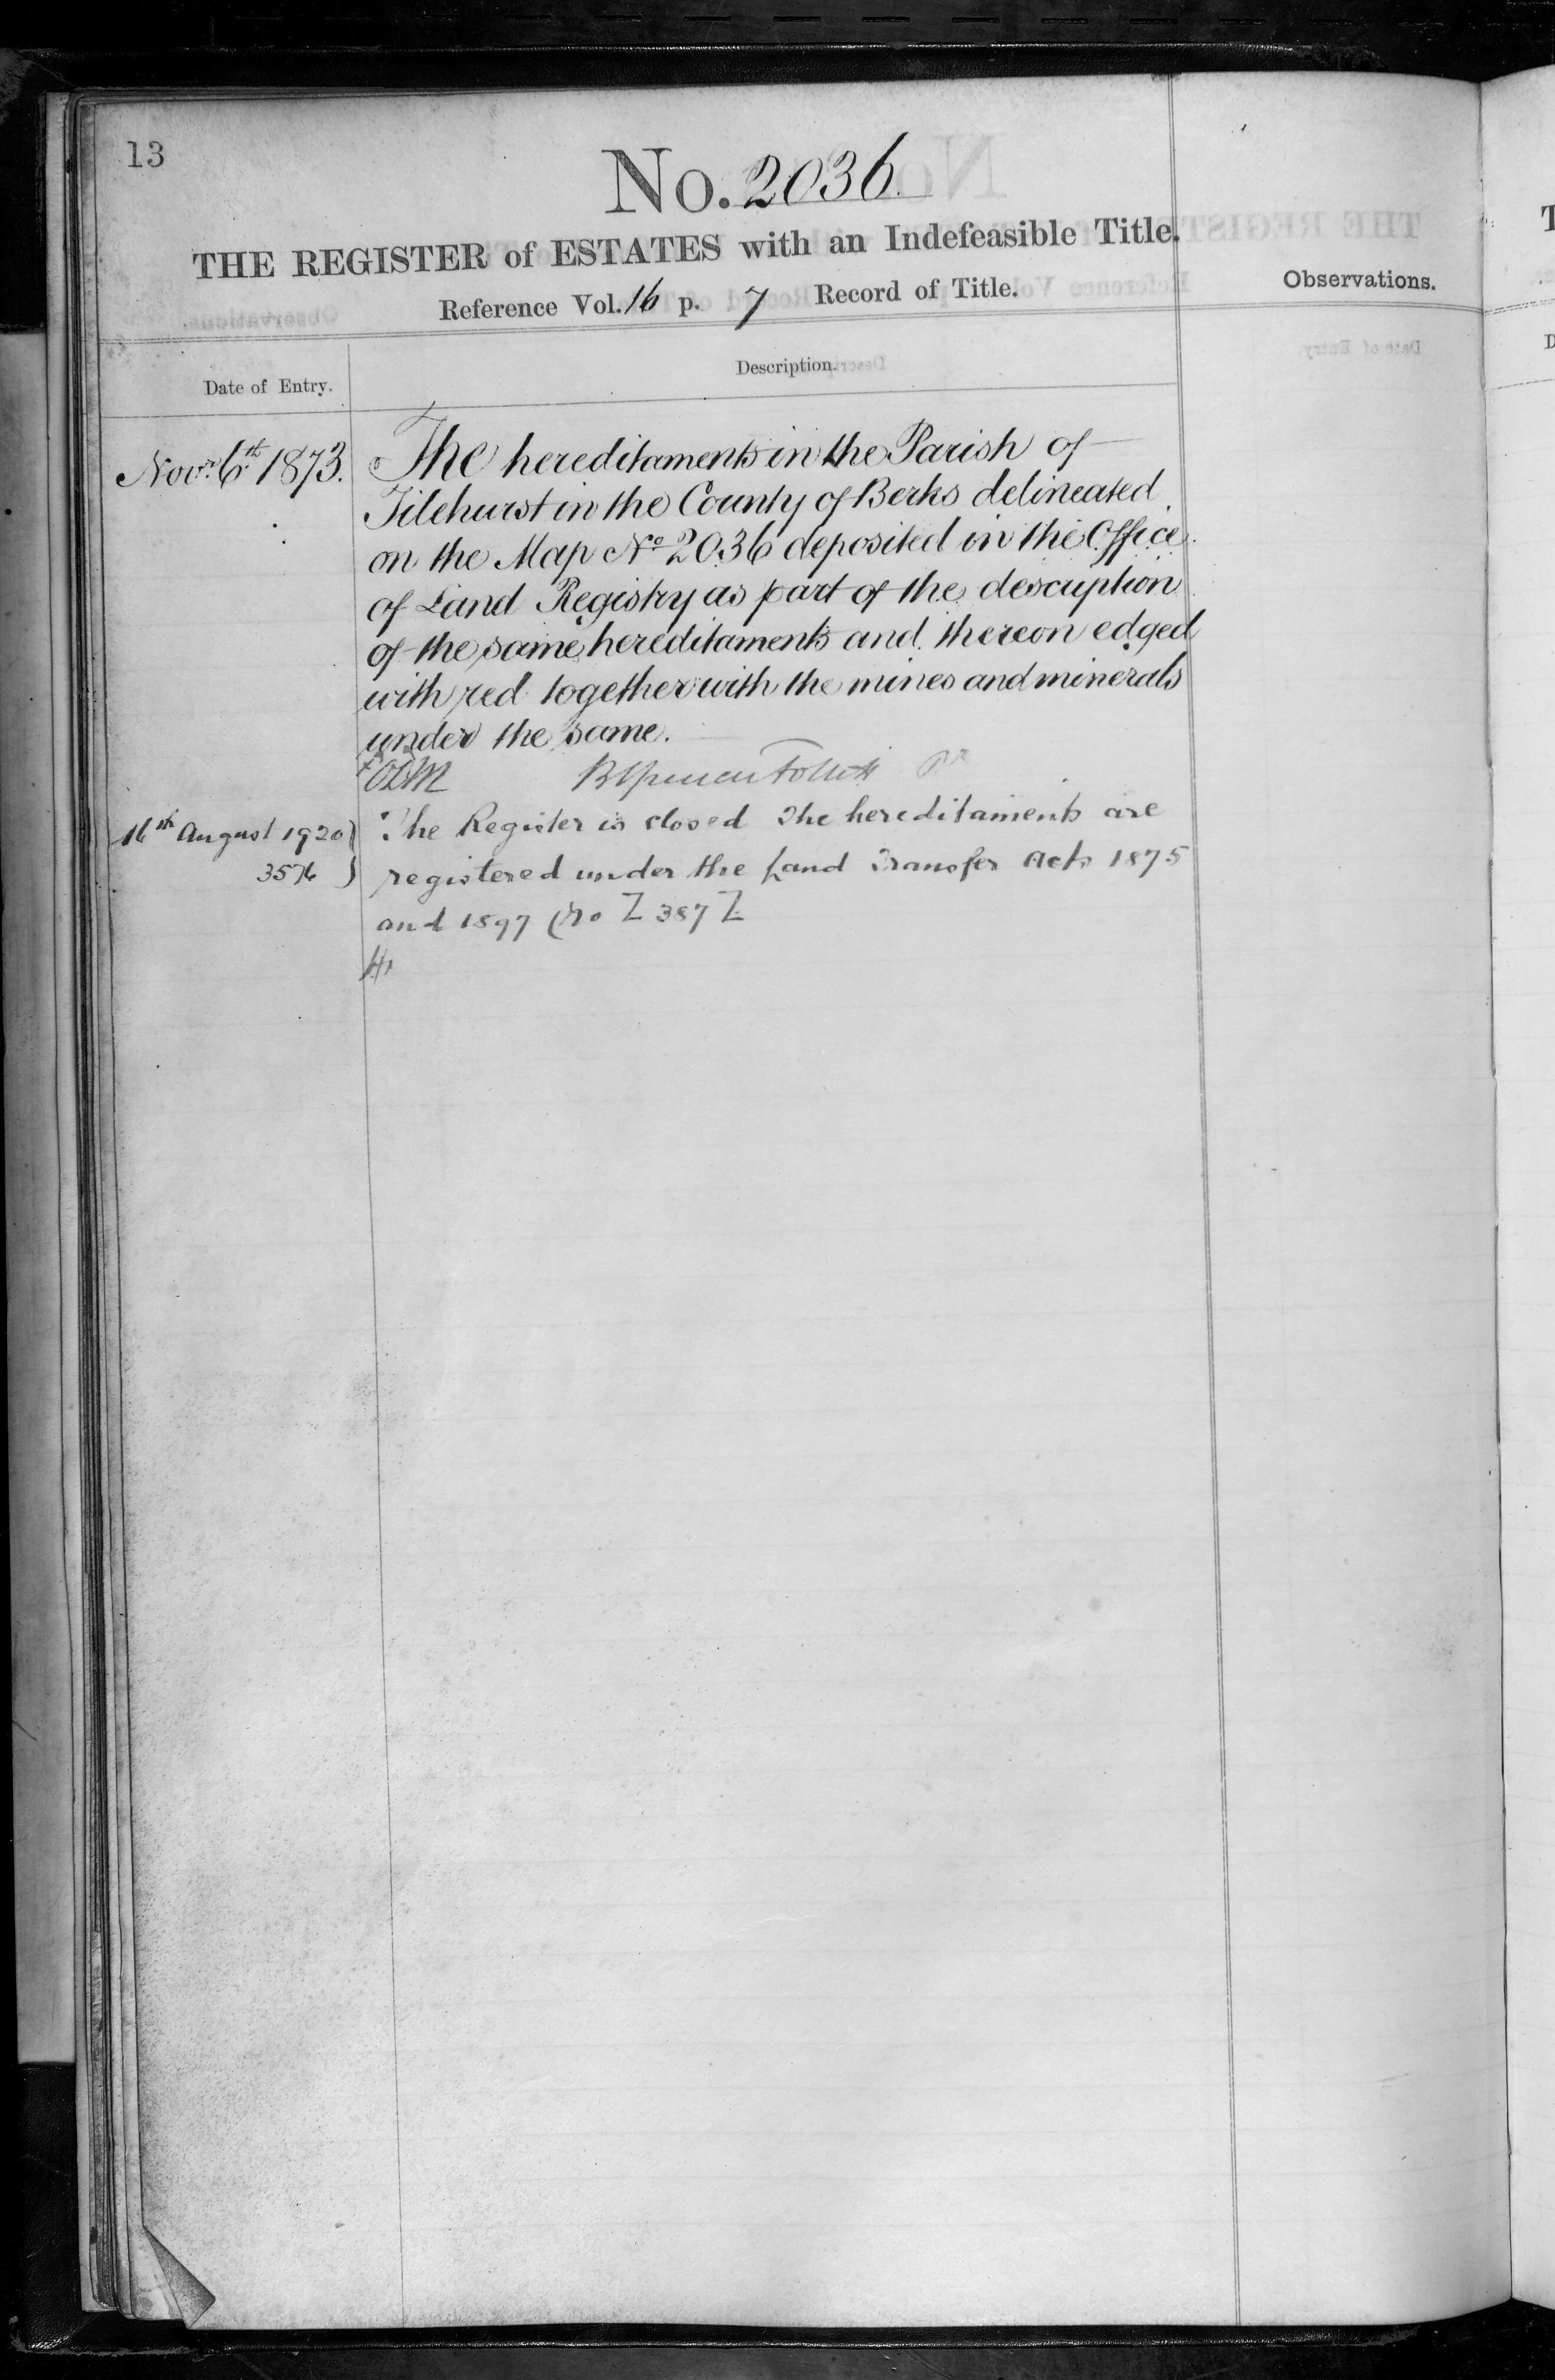 13
No. 2036
THE REGISTER of ESTATES with an Indefeasible Title.
Reference Vol. 16 p. 7 Record of Title.
Observations.
Date of Entry.
Description.
Novr. 6th 1873.
The hereditaments in the Parish of
Tilehurst in the County of Berks delineated
on the Map No 2036 deposited in the Office
of Land Registry as part of the description
of the same hereditaments and thereon edged
with red together with the mines and minerals
under the same.
16th August 1920
3576
The Register is closed The hereditaments are
registered under the Land Transfer Acts 1875
and 1897 (No Z 387 Z